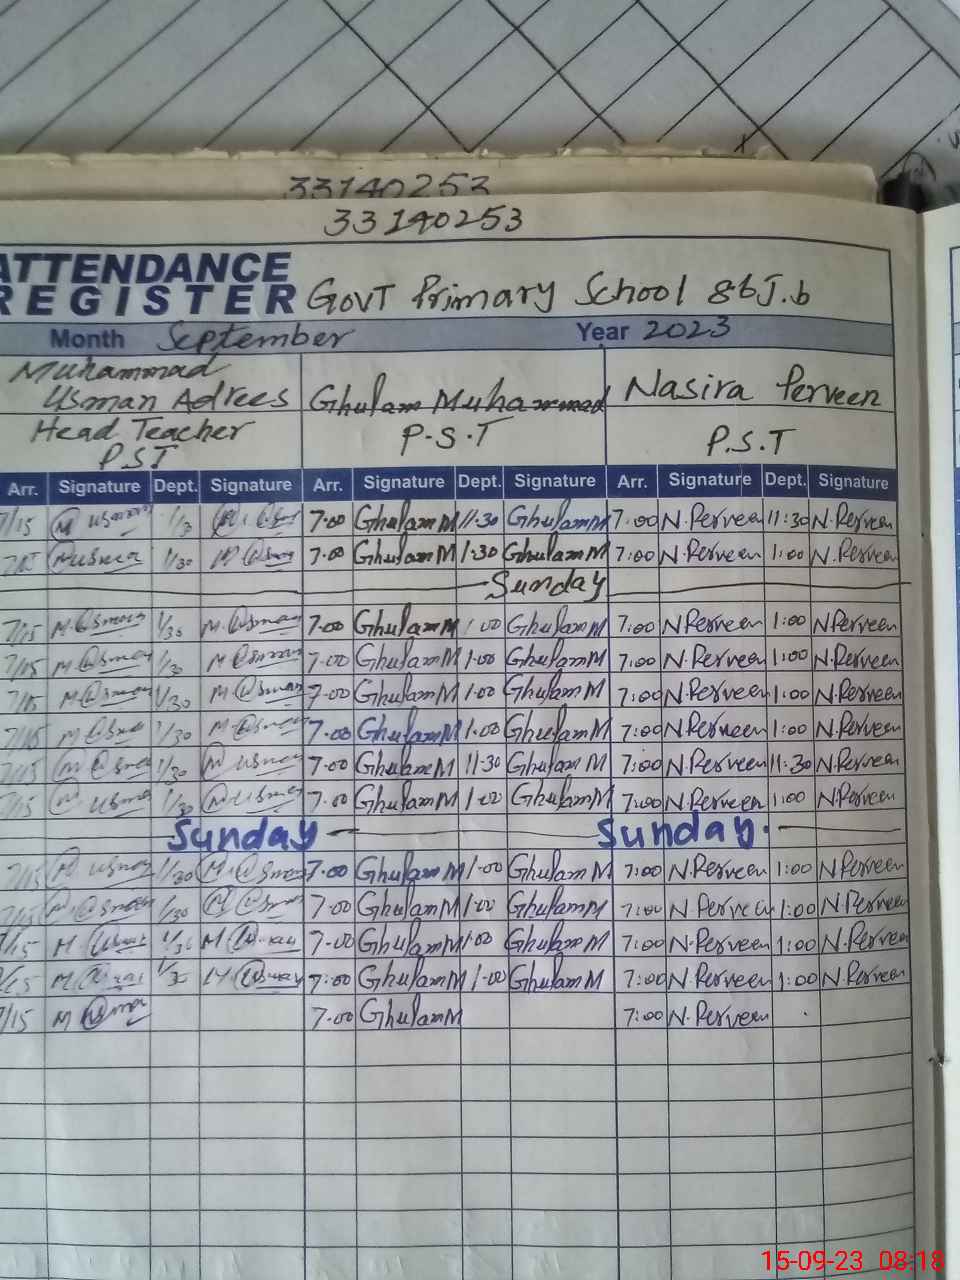 33140253
33140253
ATTENDANCE
REGISTER Govt Primary School 86 J.b
Month September Year 2023
Muhammad
Usman Adrees Ghulam Muhammad Nasira Perveen
Head Teacher P.S.T P.S.T
PST
Arr. Signature Dept. Signature Arr. Signature Dept. Signature Arr. Signature Dept. Signature
7/15 7.00 Ghulam M 11.30 Ghulam M 7:00 N.Perveen 11:30 N.Perveen
1/30 7.00 Ghulam M 1.30 Ghulam M 7:00 N.Perveen 1:00 N.Perveen
Sunday
7/15 M.Usman 1/30 M.Usman 7.00 Ghulam M 1.00 Ghulam M 7:00 N.Perveen 1:00 N.Perveen
7/15 M.Usman 1/30 M.Usman 7.00 Ghulam M 1.00 Ghulam M 7:00 N.Perveen 1:00 N.Perveen
7/15 M.Usman 1/30 M.Usman 7.00 Ghulam M 1.00 Ghulam M 7:00 N.Perveen 1:00 N.Perveen
7/15 M.Usman 1/30 M.Usman 7.00 Ghulam M 1.00 Ghulam M 7:00 N.Perveen 1:00 N.Perveen
7/15 M.Usman 1/30 M.Usman 7.00 Ghulam M 11.30 Ghulam M 7:00 N.Perveen 11:30 N.Perveen
7/15 M.Usman 1/30 M.Usman 7.00 Ghulam M 1.00 Ghulam M 7:00 N.Perveen 1:00 N.Perveen
Sunday Sunday.
7/15 M.Usman 1/30 M.Usman 7.00 Ghulam M 1.00 Ghulam M 7:00 N.Perveen 1:00 N.Perveen
7/15 M.Usman 1/30 M.Usman 7.00 Ghulam M 1.00 Ghulam M 7:00 N.Perveen 1:00 N.Perveen
7/15 M.Usman 1/30 M.Usman 7.00 Ghulam M 1.00 Ghulam M 7:00 N.Perveen 1:00 N.Perveen
7/15 M.Usman M.Usman 7.00 Ghulam M 1.00 Ghulam M 7:00 N.Perveen 1:00 N.Perveen
7/15 M.Usman 7.00 Ghulam M 7:00 N.Perveen
15-09-23 08:18